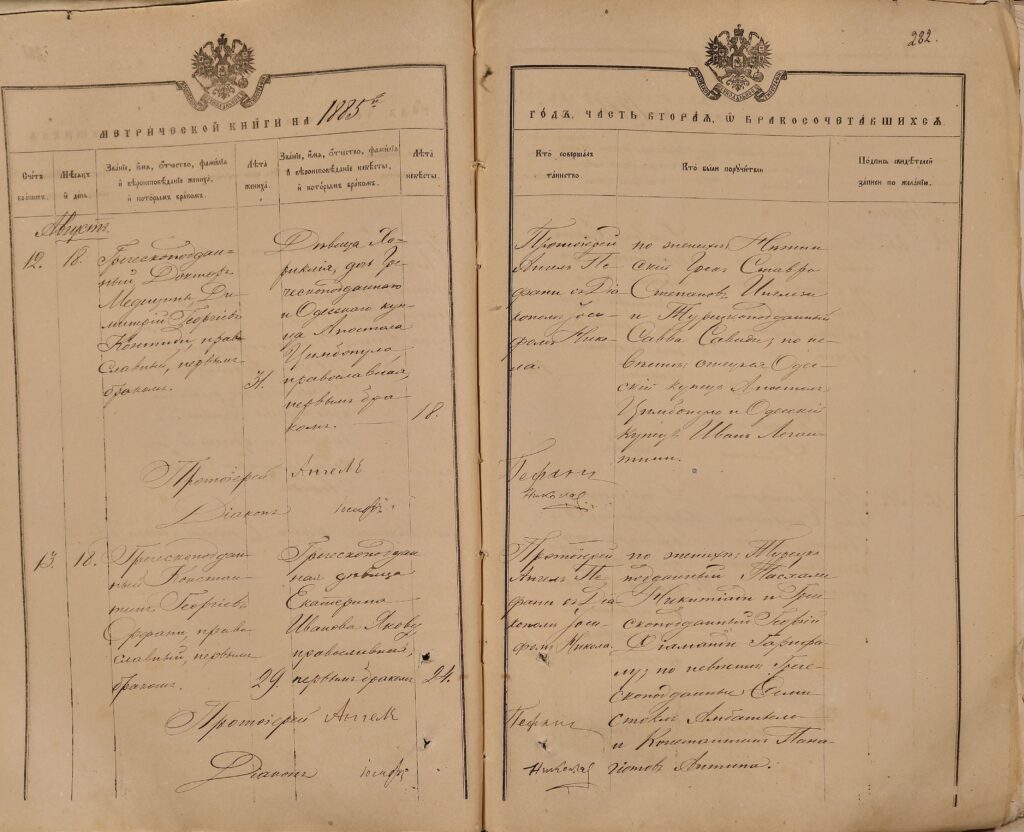 282.
МЕТРИЧЕСКОЙ КНИГИ НА 1885 г.
ГОДЪ, ЧАСТЬ ВТОРАЯ, Ѡ БРАКОСОЧЕТАВШИХСЯ.
Счетъ браковъ.
Мѣсяцъ и день.
Званіе, имя, отчество, фамилія
и вѣроисповѣданіе жениха,
и которымъ бракомъ.
Лѣта жениха.
Званіе, имя, отчество, фамилія
и вѣроисповѣданіе невѣсты,
и которымъ бракомъ.
Лѣта невѣсты.
Кто совершалъ
таинство.
Кто были поручители
Подпись свидѣтелей
записи по желанію.
Августъ.
12.
18.
Грескоподдан-
ный, Докторъ
Медицины, Ди-
митрій Георгіевъ
Контиди, право-
славный, первымъ
бракомъ.
31.
Дѣвица Ха-
риклія, дочь Гре-
ческоподданного
и Одесского куп-
ца Апостола
Цимбопуло
православная,
первымъ бра-
комъ.
18.
Протоіерей
Ангелъ Пе-
фани съ Діа-
кономъ Іоси-
фомъ Никола.
по женихѣ: Нѣжин-
скій Грекъ Ставро
Степановъ
и Турецкоподданный
Савва Савиди; по не-
вѣстѣ: отецъ Одес-
скій купецъ Апостолъ
Цимбопуло и Одесскій
купецъ Иванъ
Протоіерей Ангелъ Пефани
Діаконъ Іосифъ Николай
13.
18.
Грескоподдан-
ный Констан-
тинъ Георгіевъ
Орфани, право-
славный, первымъ
бракомъ.
29.
Грескоподдан-
ная дѣвица
Екатерина
Иванова Якову
православная,
первымъ бракомъ
24.
Протоіерей
Ангелъ Пе-
фани съ Діа-
кономъ Іоси-
фомъ Никола.
по женихѣ: Турецко
подданный Пасхали
Никитіади и Гре-
скоподданный Георгій
Діаманди
по невѣстѣ: Грече-
скоподданные Ѳеми-
стоклъ Амбатьело
и Константинъ Пана-
гіотовъ Аптина.
Протоіерей Ангелъ Пефани
Діаконъ Іосифъ Николай